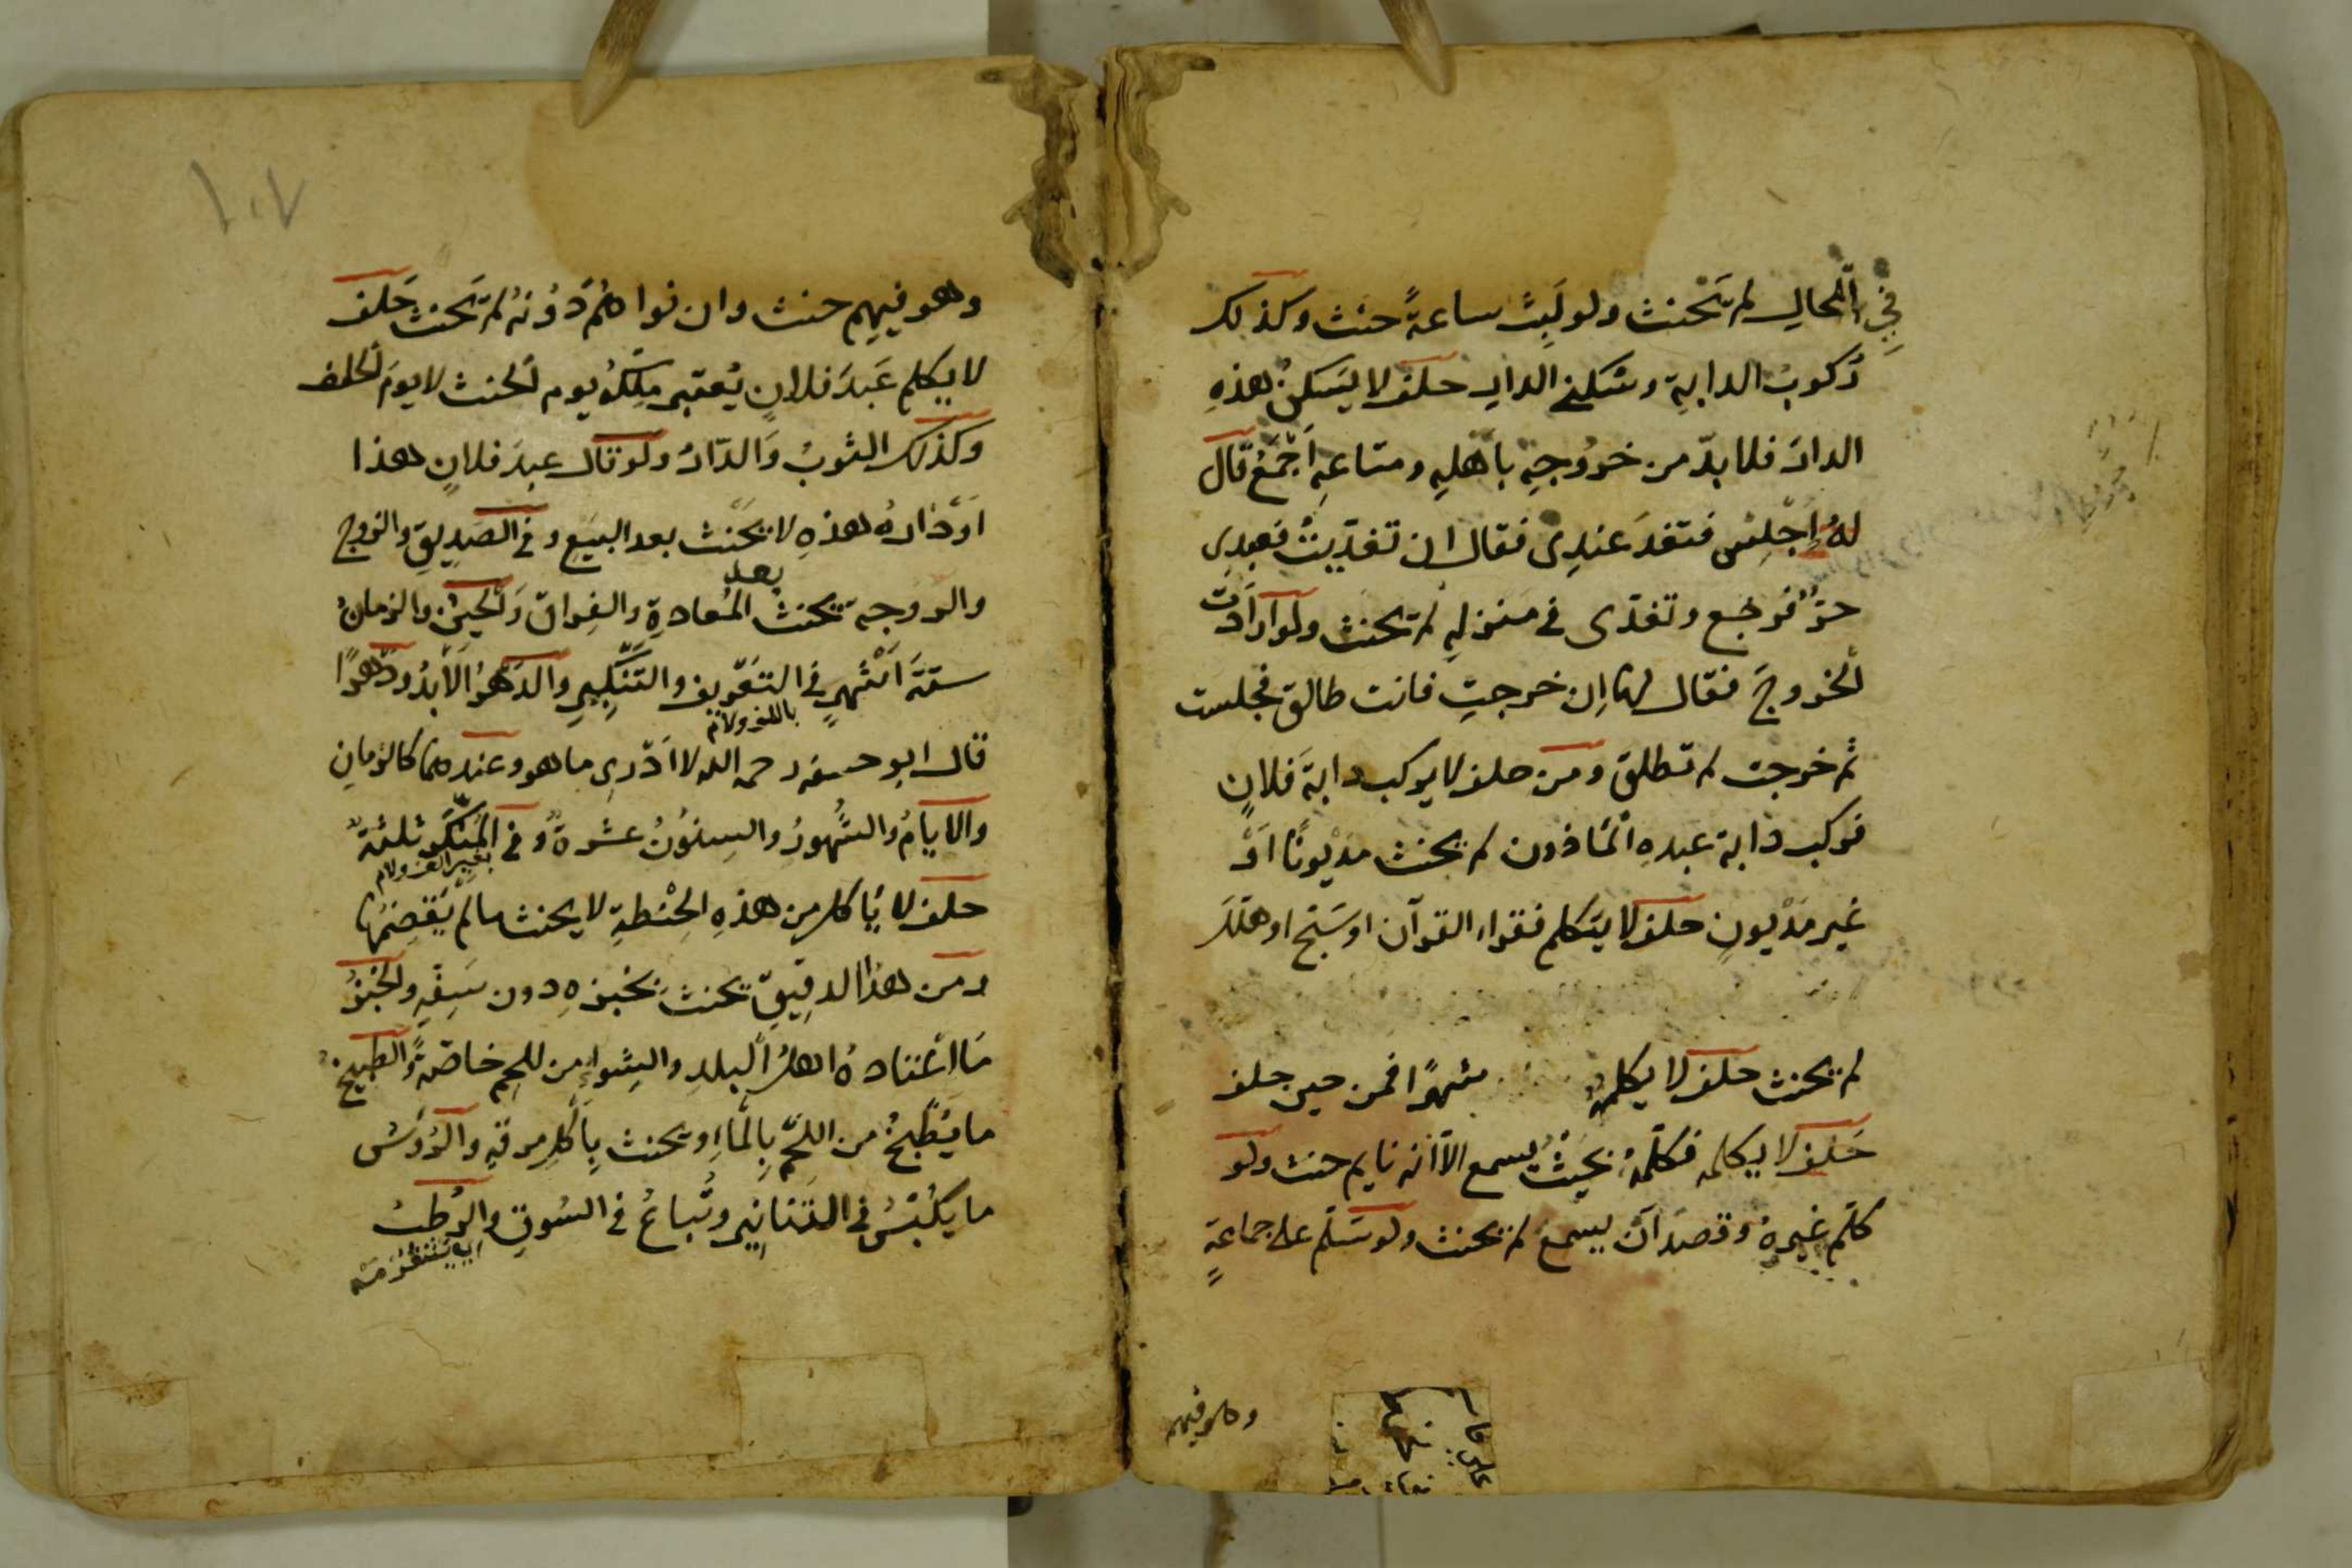 في الحال لم يحنث ولو لبث ساعةً حنث وكذلك
ركوب الدابة وسكنى الدار حلف لا يسكن هذه
الدار فلا بدّ من خروجه باهله ومتاعه اجمع قال
له اجلس فتغد عندى فقال ان تغديت فعبدى
حرّ فرجع وتغدى في منزله لم يحنث ولو ارادت
الخروج فقال لها ان خرجت فانت طالق فجلست
ثم خرجت لم تطلق ومن حلف لا يركب دابة فلان
فركب دابة عبده الماذون لم يحنث مديونًا اوْ
غير مديون حلف لا يتكلم فقراء القرآن او سبح او هلل
لم يحنث حلف لا يكلمه شهرًا فمن حين حلف
حلف لا يكلمه فكلمه بحيث يسمع الا انه نايم حنث ولو
كلم غيره وقصد ان يسمع لم يحنث ولو سلم على جماعة
وهو فيهم
١٠٧
وهو فيهم حنث وان نواهم دونه لم يحنث حلف
لا يكلم عبد فلان يعتبر ملكه يوم الحنث لا يوم الحلف
وكذلك الثوب والدار ولو قال عبد فلان هذا
او داره هذه لا يحنث بعد البيع وفي الصديق والزوج
والزوجة يحنث بعد المعادة والفراق والحين والزمان
ستة اشهر في التعريف والتنكير والدهر الابد ودهرًا
باللف ولام
قال ابو حنيفه رحمه الله لا ادرى ما هو وعندهما كالزمان
والايام والشهور والسنون عشرة وفي المنكر ثلثة
بغير الف ولام
حلف لا ياكل من هذه الحنطة لا يحنث ما لم يقضمها
ومن هذا الدقيق يحنث بخبزه دون سفه والخبز
ما اعتاده اهل البلد والشواء من اللحم خاصة والطبيخ
ما يطبخ من اللحم بالماء ويحنث باكل مرقه والرؤس
ما يكبس في التنانير وتباع في السوق والرطب